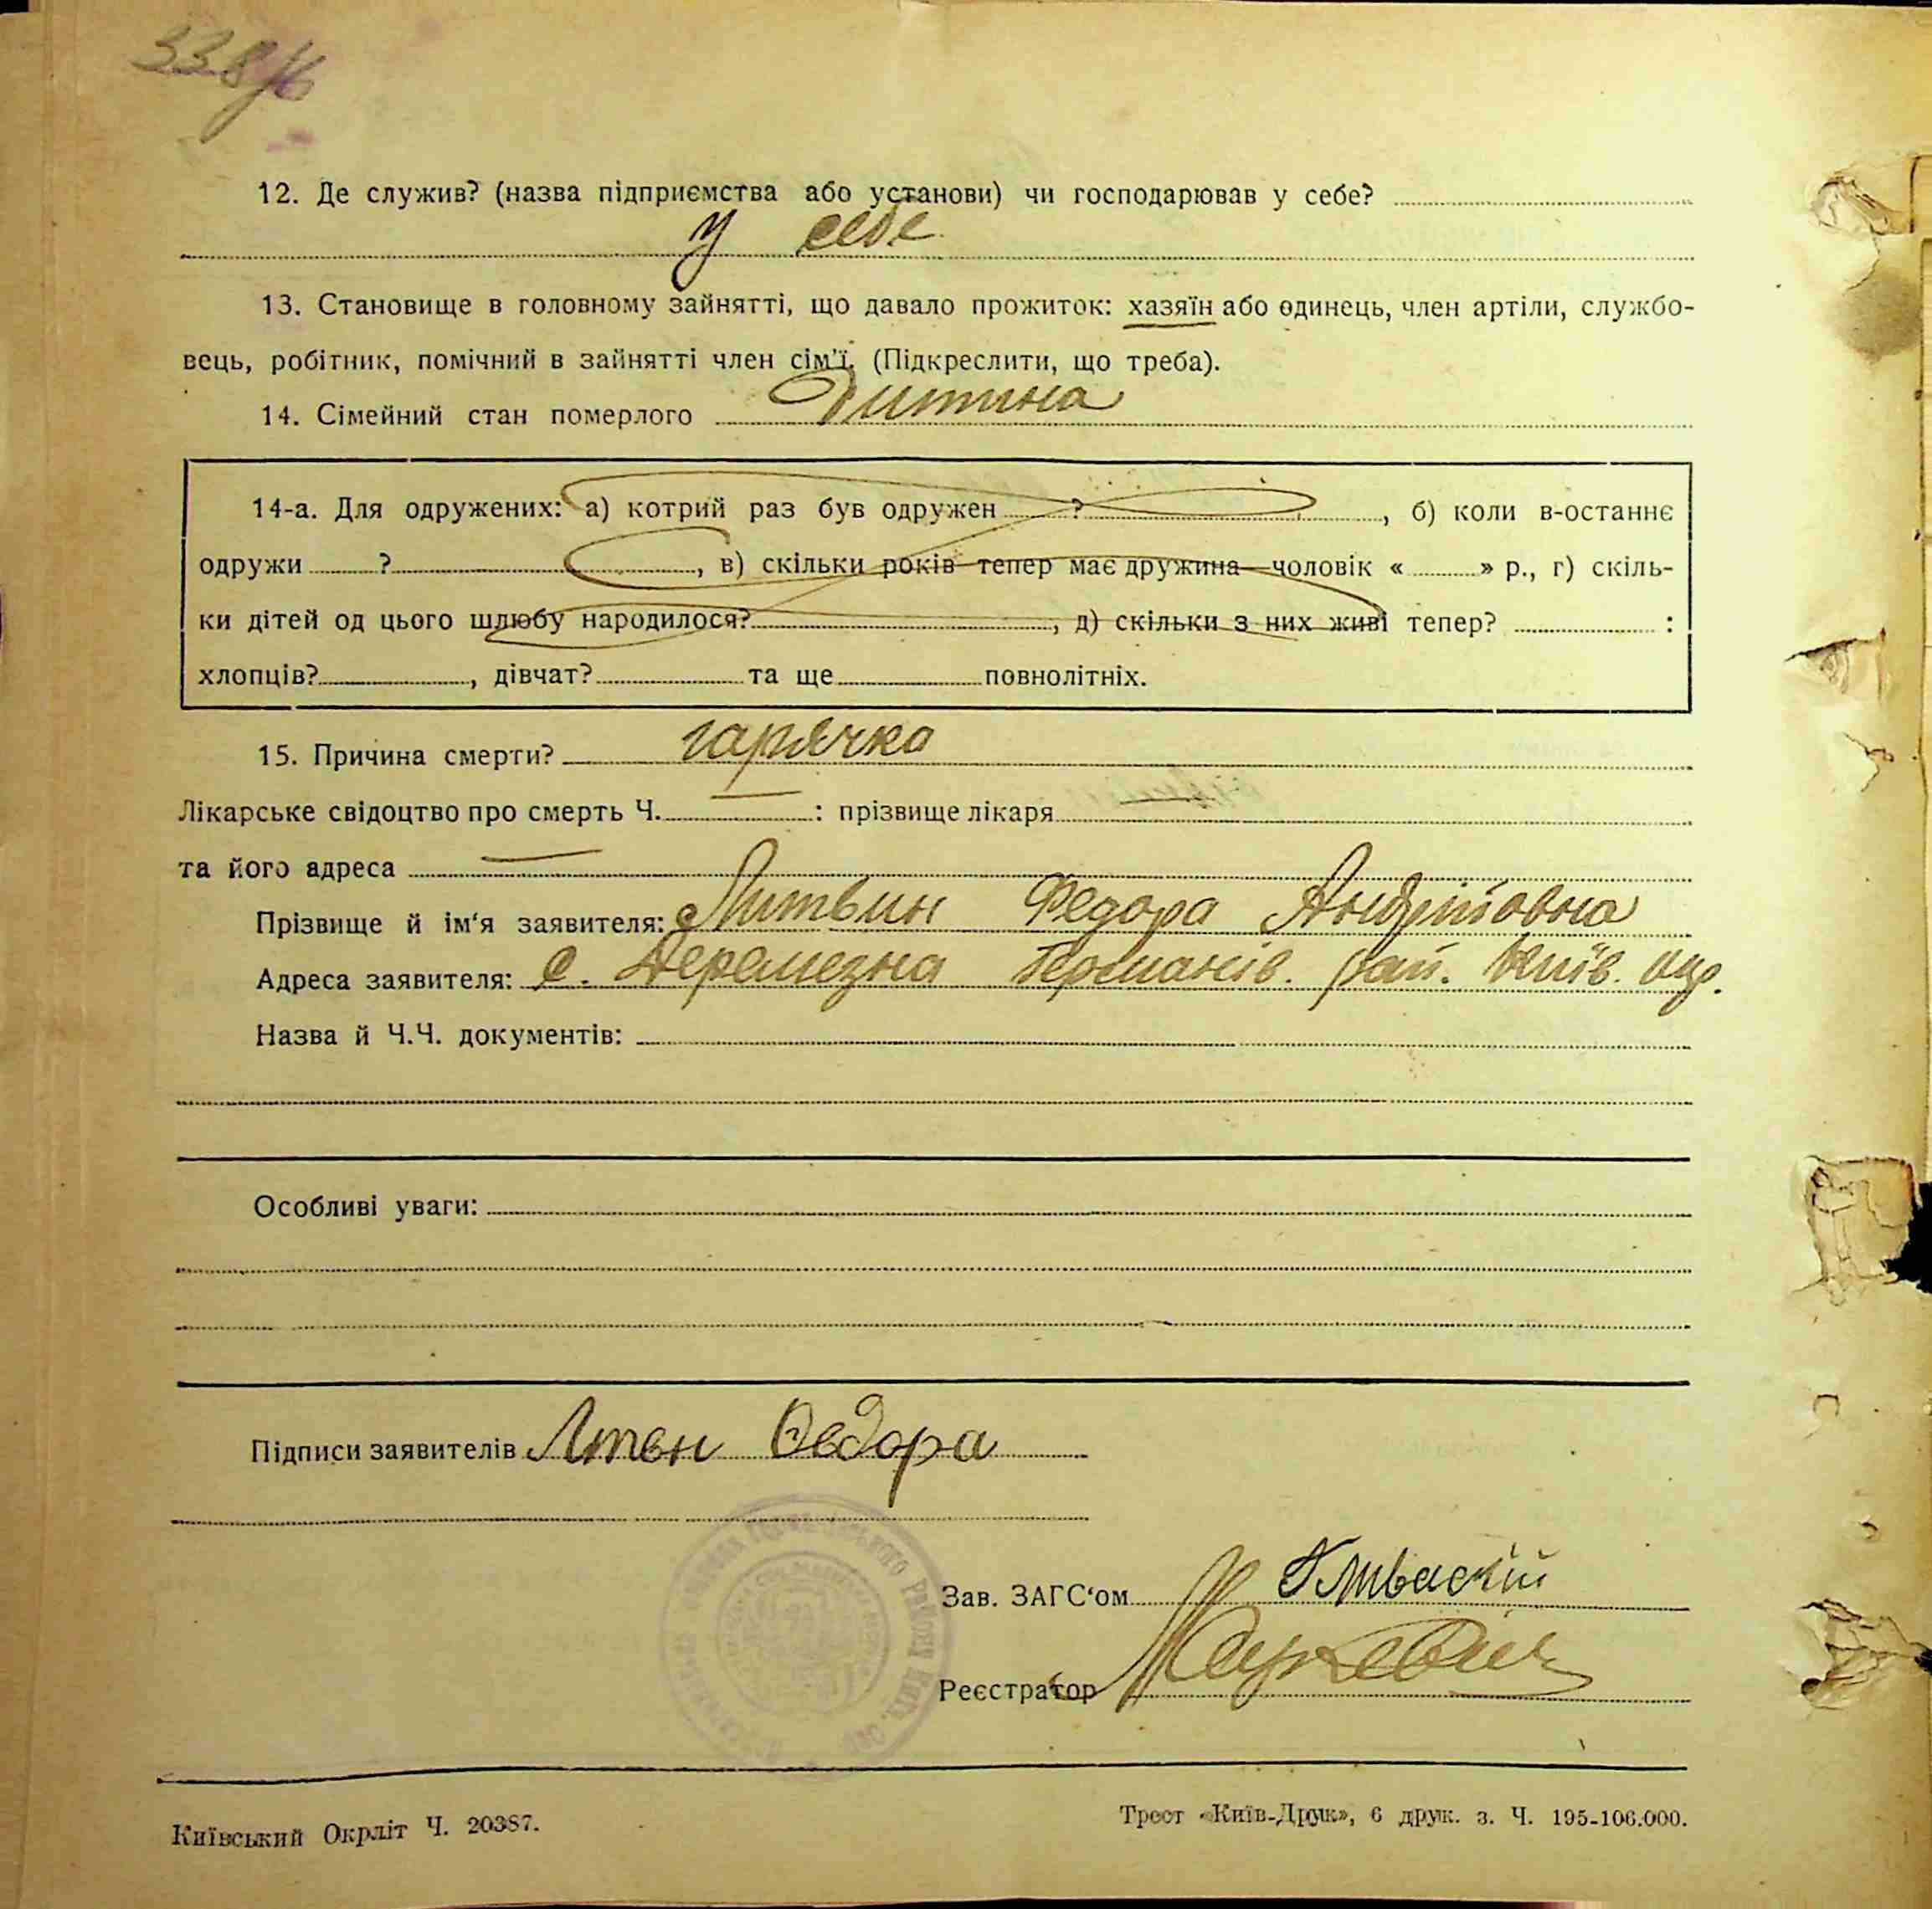 338/16
12. Де служив? (назва підприємства або установи) чи господарював у себе?
у себе
13. Становище в головному зайнятті, що давало прожиток: хазяїн або одинець, член артіли, службо-
вець, робітник, помічний в зайнятті член сім'ї. (Підкреслити, що треба).
14. Сімейний стан померлого Дитина
14-а. Для одружених: а) котрий раз був одружен ?, б) коли в-останнє
одружи ?, в) скільки років тепер має дружина—чоловік « » р., г) скіль-
ки дітей од цього шлюбу народилося?, д) скільки з них живі тепер? :
хлопців?, дівчат? та ще повнолітніх.
15. Причина смерти? гарячка
Лікарське свідоцтво про смерть Ч. : прізвище лікаря
та його адреса
Прізвище й ім'я заявителя: Литвин Федора Андріївна
Адреса заявителя: с. Деремезна Германів. рай. Київ. окр.
Назва й Ч.Ч. документів:
Особливі уваги:
Підписи заявителів Лтвн Федора
Зав. ЗАГС'ом
Реєстратор
Київський Окрліт Ч. 20387.
Трест «Київ-Друк», 6 друк. з. Ч. 195-106.000.